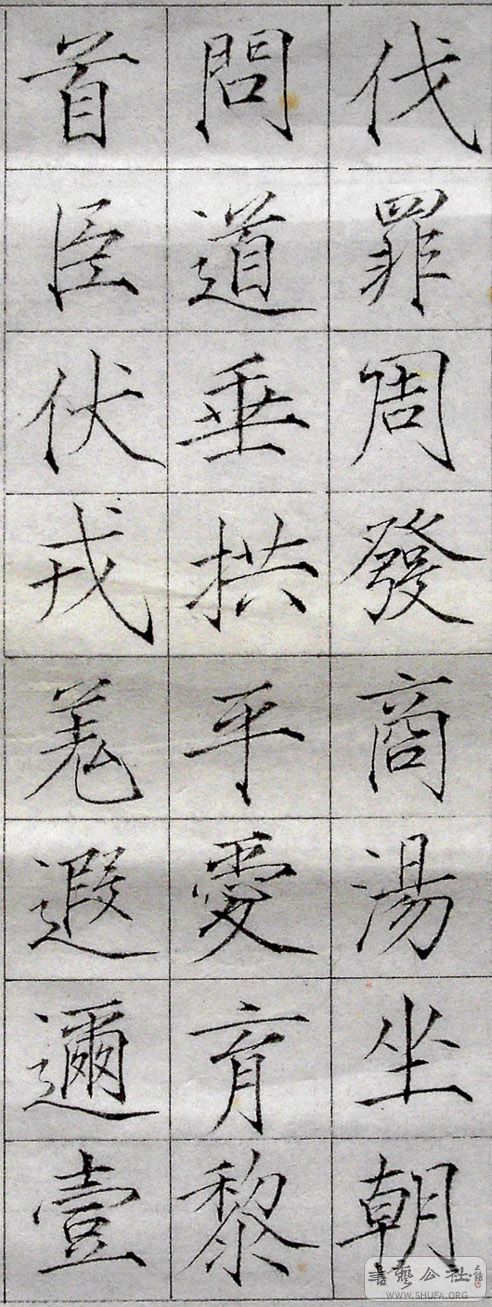 伐罪周發商湯坐朝
問道垂拱平愛育黎
首臣伏戎羌遐邇壹
書藝公社
WWW.SHUFA.ORG